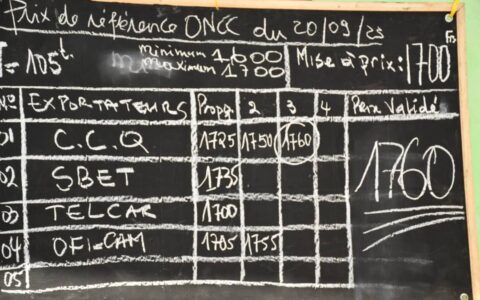 Prix de référence ONCC du 20/09/23
= 105t. minimum 1,600 Mise à prix: 1700 Frs
maximum 1700
N° EXPORTATEURS Propo 2 3 4 Prix Validé
01 C.C.Q 1725 1750 1760 1760
02 SBET 1735
03 TELCAR 1700
04 OFI-CAM 1705 1755
05